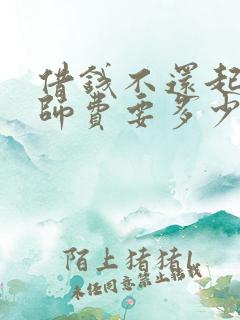 借錢不還起
師費要多少
陌上猪猪l
未经同意禁止转载